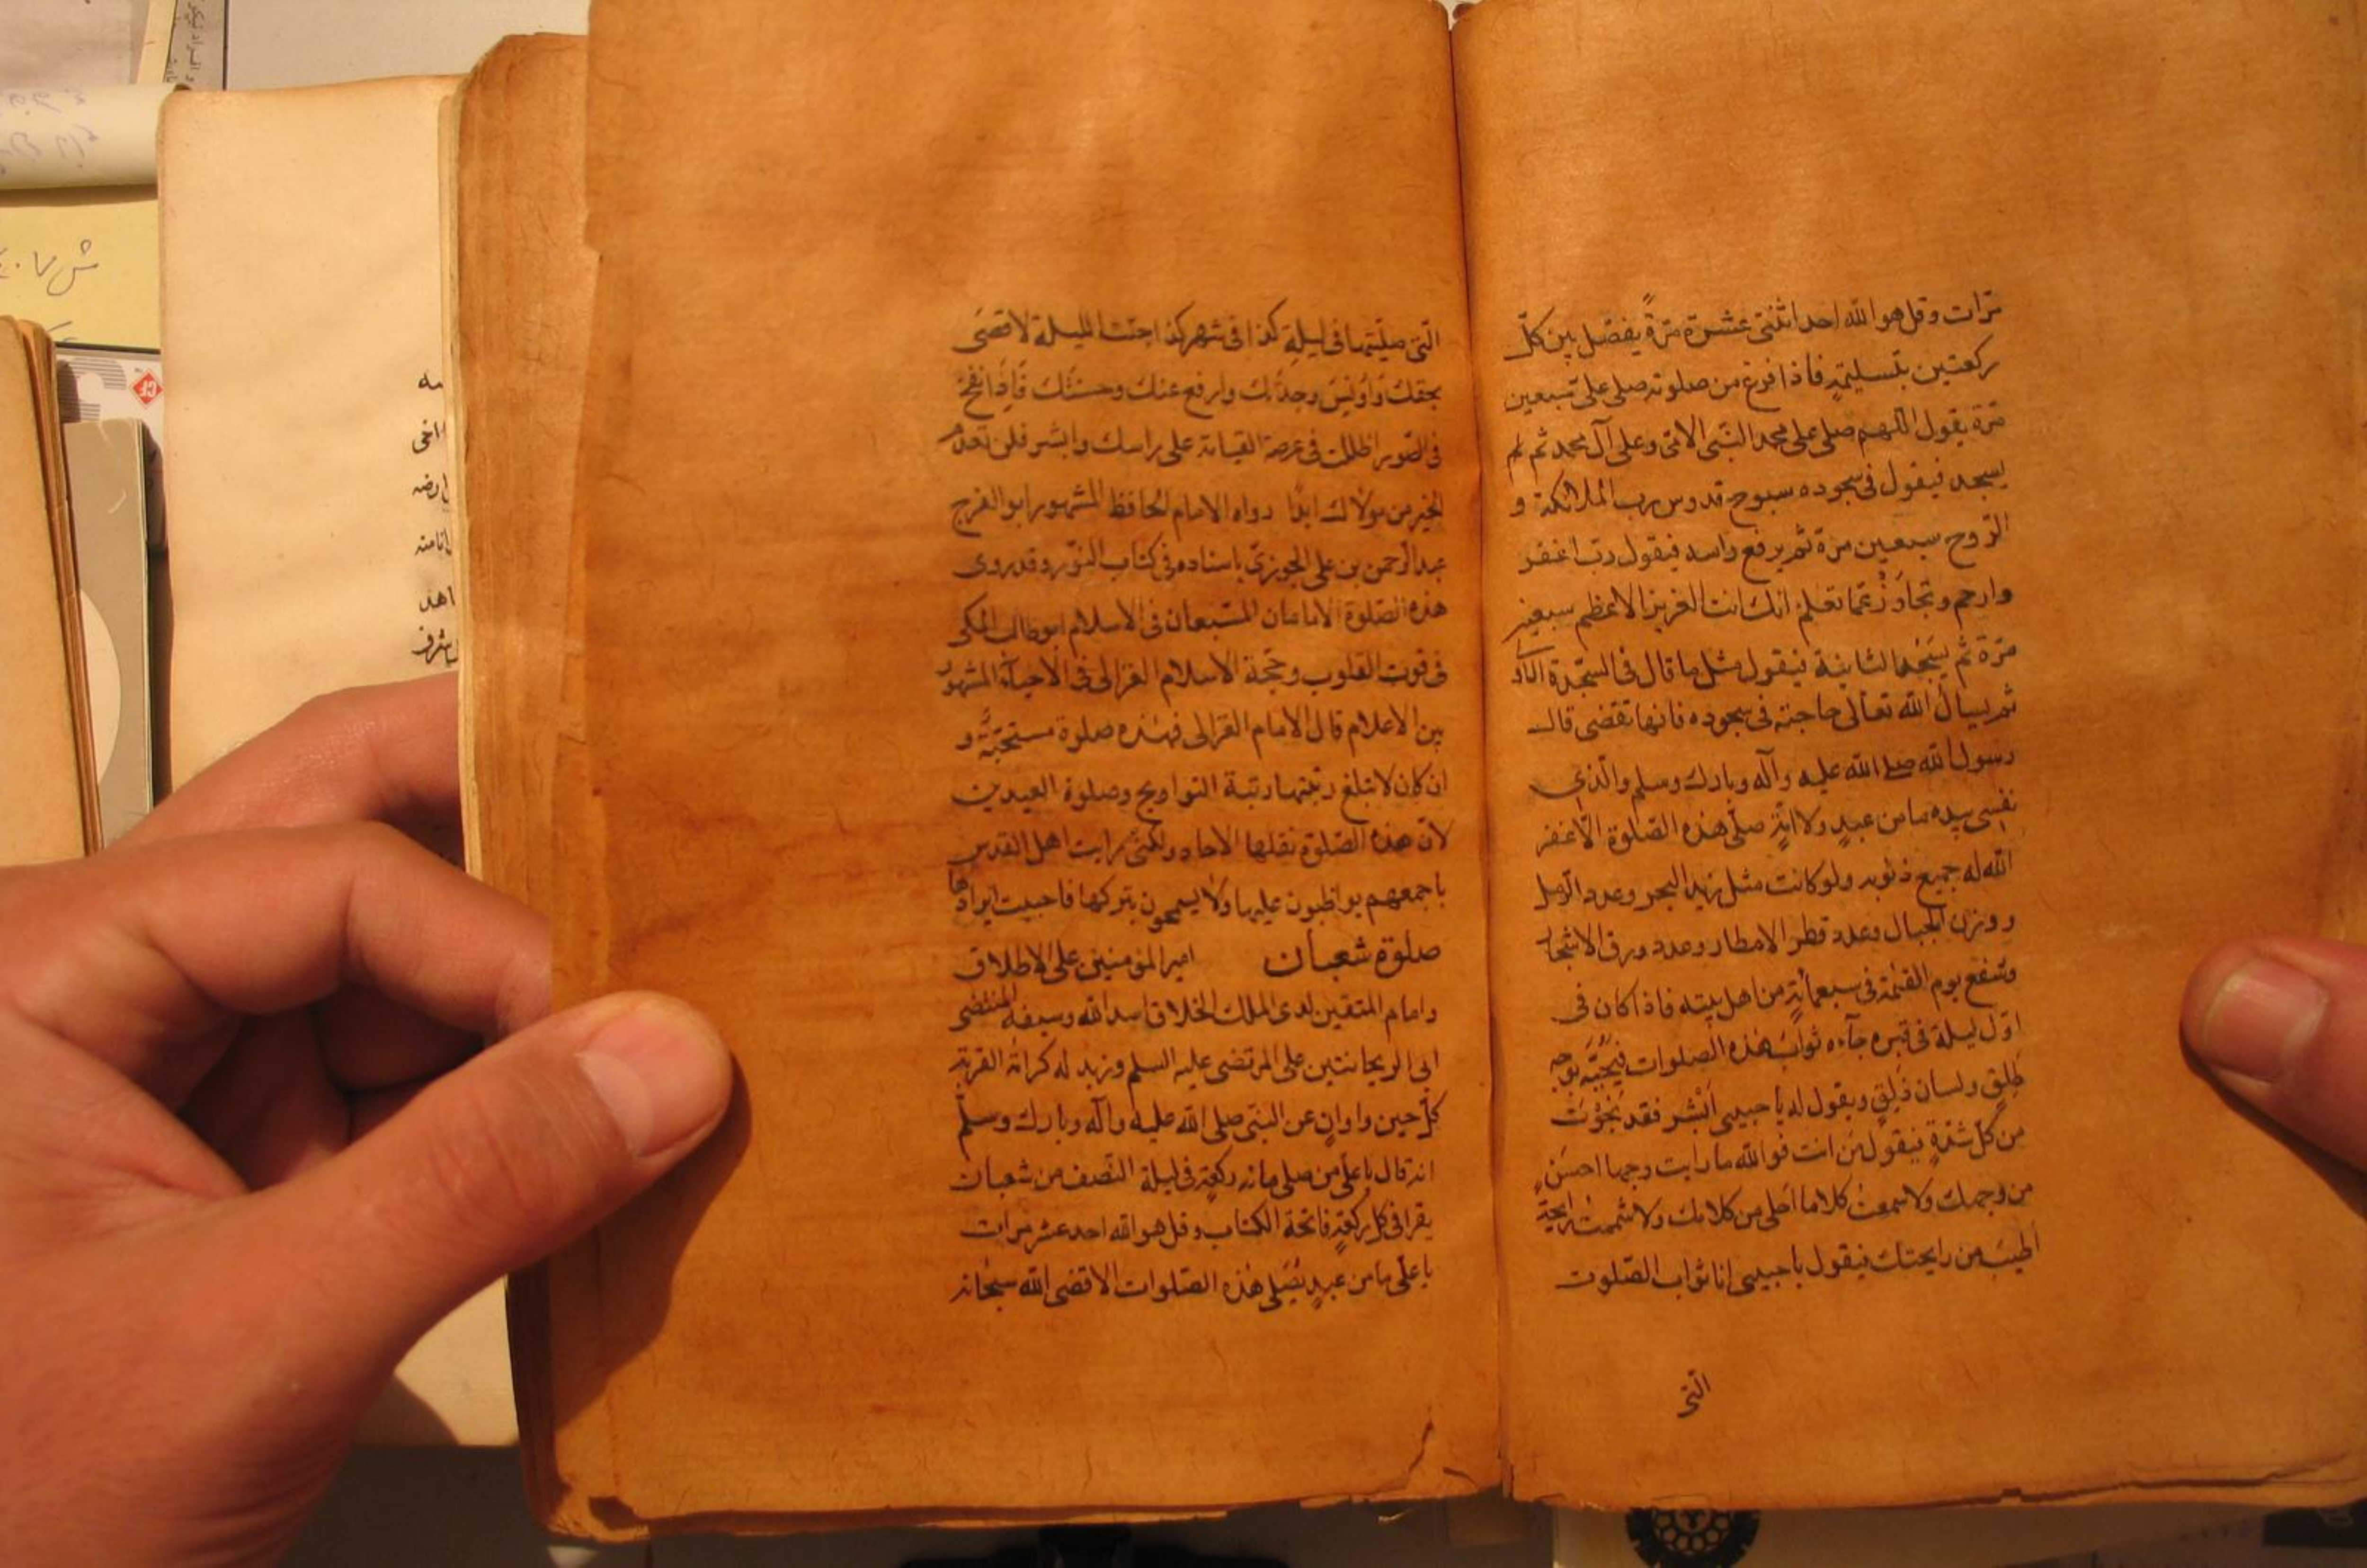 مرّات وقل هو الله احد اثنتى عشرة مرّةً يفصّل بين كلّ
ركعتين بتسليمةٍ فاذا فرغ من صلوته صلى علىّ سبعين
مرّة يقول اللّهم صلى على محمد النبّى الامّى وعلى آل محمد ثم
يسجد فيقول فى سجوده سبوح قدوس رب الملائكة و
الرّوح سبعين مرّة ثم يرفع راسه فيقول ربّ اغفر
وارحم وتجاوَزْ عمّا تعلم انّك انت العزيز الاعظم سبعين
مرّة ثم يسجد الثانية فيقول مثل ما قال فى السّجدة الاولى
ثم يسأل الله تعالى حاجته فى سجوده فانها تقضى قال
رسول الله صلى الله عليه وآله وبارك وسلم والّذى
نفسى بيده ما من عبدٍ ولا امةٍ صلّى هذه الصّلوة الّا غفر
الله له جميع ذنوبه ولو كانت مثل زبد البحر وعدد الرّمل
ووزن الجبال وعدد قطر الامطار وعدد ورق الاشجار
وشفع يوم القيمة فى سبعمائةٍ من اهل بيته فاذا كان فى
اوّل ليلة فى قبره جآءه ثواب هذه الصلوات فيجيئه بوجه
طلِقٍ ولسان ذَلِقٍ ويقول له يا حبيبى ابْشر فقد نجَوْتَ
من كلّ شدّةٍ فيقول من انت فوالله ما رايت وجها احسَن
من وجهك ولا سمعت كلاما احلى من كلامك ولا شممت رايحةً
اطيبَ من رايحتك فيقول يا حبيبى انا ثواب الصّلوت
الّتى
الّتى صلّيتها فى ليلةِ كذا فى شهر كذا جئت الليلة لاقضى
بحقك واُونسَ وحدتك وارفع عنك وحشتك فاذا نفخ
فى الصّور اظللت فى عرصة القيامة على راسك وابشر فلن تعدم
الخير من مولاك ابدًا رواه الامام الحافظ المشهور ابو الفرج
عبد الرّحمن بن على الجوزىّ باسناده فى كتاب النوّر وقد روى
هذه الصّلوة الامامان المتّبعان فى الاسلام ابو طالب المكى
فى قوت القلوب وحجّة الاسلام الغزالى فى الاحيآء المشهور
بين الاعلام قال الامام الغزالى فهذه صلوة مستحبّة و
ان كان لا تبلغ رتبتها رتبة التراويح وصلوة العيدين
لانّ هذه الصّلوة نقلها الآحاد ولكنّى رايت اهل القدس
باجمعهم يواظبون عليها ولا يسمحون بتركها فاحببت ايرادها
صلوة شعبان امير المؤمنين على الاطلاق
وامام المتقين لدى الملك الخلاق اسد الله وسيفه المنتضى
ابى الريحانتين على المرتضى عليه السلم وزيد له كرامة القربة
كلّ حين واوانٍ عن النبّى صلى الله عليه وآله وبارك وسلّم
انه قال يا علّى من صلى مائة ركعةٍ فى ليلة النّصف من شعبان
يقرا فى كل ركعةٍ فاتحة الكتاب وقل هو الله احد عشر مرات
يا علّى ما من عبدٍ يُصَلّى هذه الصّلوات الا قضى الله سبحانه